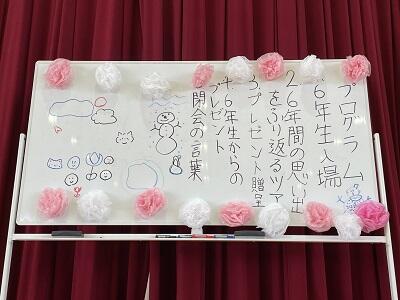 プログラム
1 6年生入場
2 6年間の思い出
をふり返るツアー
3.プレゼント贈呈
4.6年生からの
プレゼント
閉会の言葉